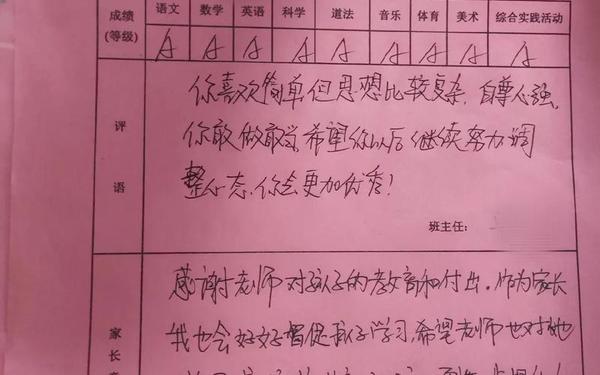 成绩(等级) 语文 数学 英语 科学 道法 音乐 体育 美术 综合实践活动
A A A A A A A A A
评语
你喜欢简单,但思想比较复杂,自尊心强,
你敢做敢当,希望你以后继续努力,调
整心态,你会更加优秀!
班主任:
家长
感谢老师对孩子的教育和付出。作为家长
我也会好好督促孩子学习,希望老师也对她